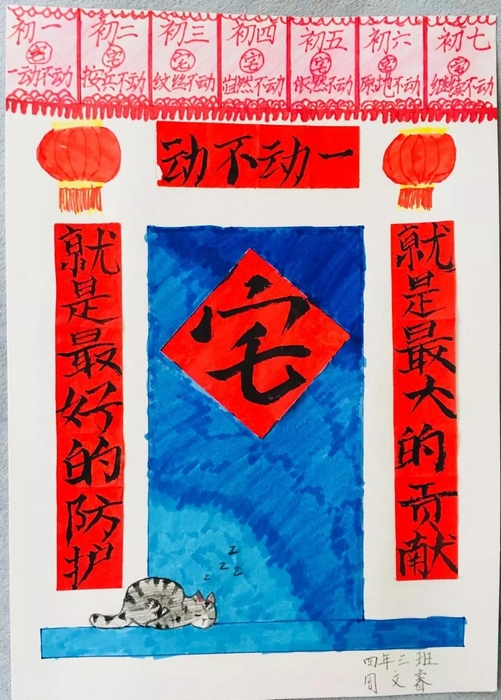 初一 初二 初三 初四 初五 初六 初七
宅 宅 宅 宅 宅 宅 宅
一动不动 按兵不动 纹丝不动 岿然不动 依然不动 原地不动 继续不动
一动不动
就是最大的贡献
就是最好的防护
宅
z z z z
四年三班
周文睿